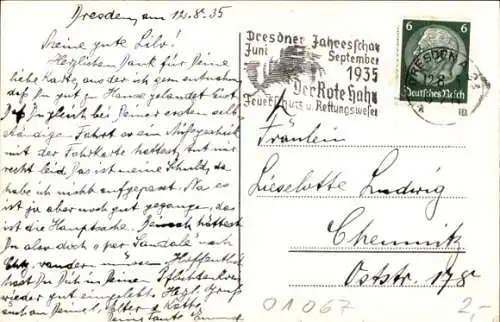 Dresden, am 12.8.35
Meine gute Lilo!
Herzlichen Dank für Deine
liebe Karte, aus der ich gern entnahm
daß Du gut zu Hause gelandet bist.
Daß Du gleich bei Deiner ersten selb-
ständigen Fahrt so ein Mißgeschick
mit der Fahrkarte hattest, tut mir
recht leid. Das ist meine Schuld, da
habe ich nicht aufgepasst. Na es
ist ja aber noch gut gegangen, das
ist die Hauptsache. Danach hättest
Du also doch o per Sandale nach
Ch. wandern müssen. Hoffentlich
hast Du Dich in Deine Pflichten
wieder gut eingelebt. Herzl. Gruß
auch an Deine l. Eltern &
Deine Tante
Dresdner Jahresschau
Juni September
1935
Der Rote Hahn
Feuerschutz u. Rettungswesen
6 6
Deutsches Reich
DRESDEN A 24
12.8.
Fräulein
Lieselotte Ludwig
Chemnitz
Oststr. 178
01067
2,-